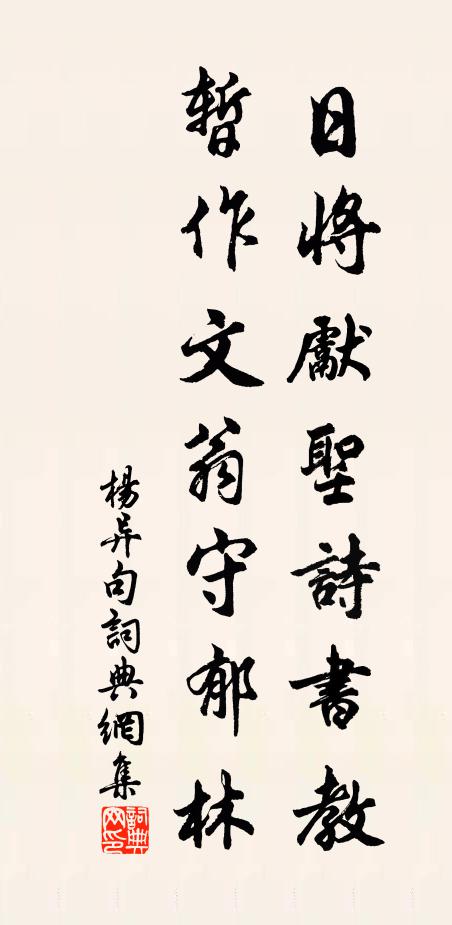 日將獻聖詩書教
暫作文翁守郁林
楊异句詞典網集
詞典網印